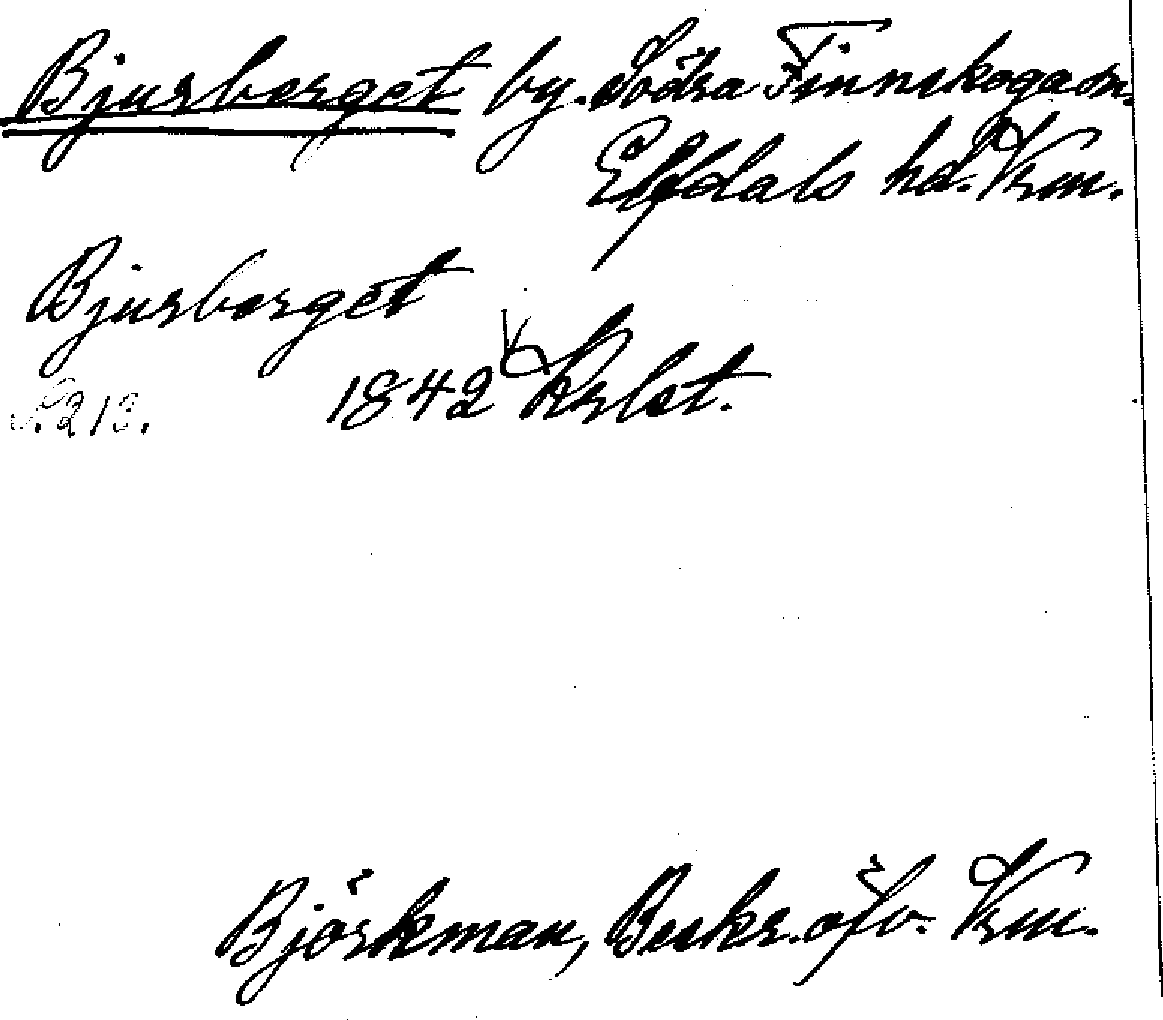 Bjurberget by. Södra Finnskoga sn.
Elfdals hd. Vrm.
Bjurberget
S. 213. 1842 Krbst.
Björkman, Beskr. öfv. Vrm.